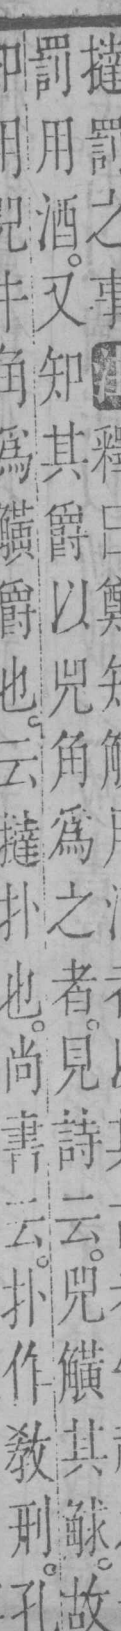 撻罰之事疏釋曰鄭知觵用酒者以其
罰用酒。又知其爵以兕角爲之者。見詩云。兕觵其觩。故
知用兕牛角爲觵爵也。云撻扑也。尚書云。扑作敎刑。孔